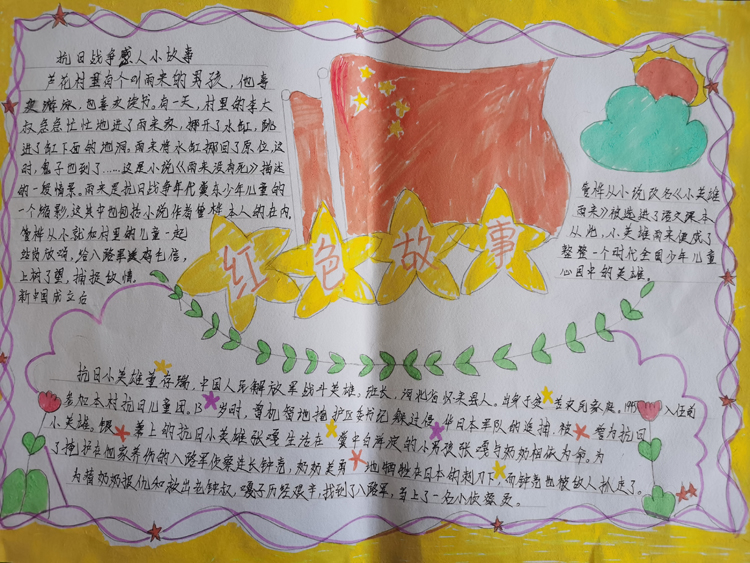 抗日战争感人小故事
芦花村里有个叫雨来的男孩，他喜
爱游泳，也喜欢读书，有一天，村里的李大
叔急急忙忙地进了雨来家，挪开了水缸，跳
进了缸下面的地洞，雨来将水缸挪回了原位，这
时，鬼子也到了……这是小说《雨来没有死》描述
的一段情景。雨来是抗日战争年代冀东少年儿童的
一个缩影，这其中也包括小说作者管桦本人的在内，
管桦从小就和村里的儿童一起
站岗放哨，给八路军送鸡毛信，
上树了望，捕捉敌情。
新中国成立后
管桦从小说改名《小英雄
雨来》被选进了语文课本
从此，小英雄雨来便成了
整整一个时代全国少年儿童
心目中的英雄。
红色故事
抗日小英雄董存瑞，中国人民解放军战斗英雄，班长，河北省怀来县人。出身于贫苦农民家庭。
参加本村抗日儿童团。13岁时，曾机智地掩护区委书记躲过侵华日军队的追捕，被誉为抗日
小英雄。银幕上的抗日小英雄张嘎生活在
白洋淀的小男孩张嘎与奶奶相依为命。为
了掩护在他家养病的八路军侦察连长钟亮，奶奶英勇地牺牲在日本的刺刀下，而钟亮也被敌人抓走了。
为替奶奶报仇和救出老钟叔，嘎子历经艰辛，找到了八路军，当上了一名小侦察员。